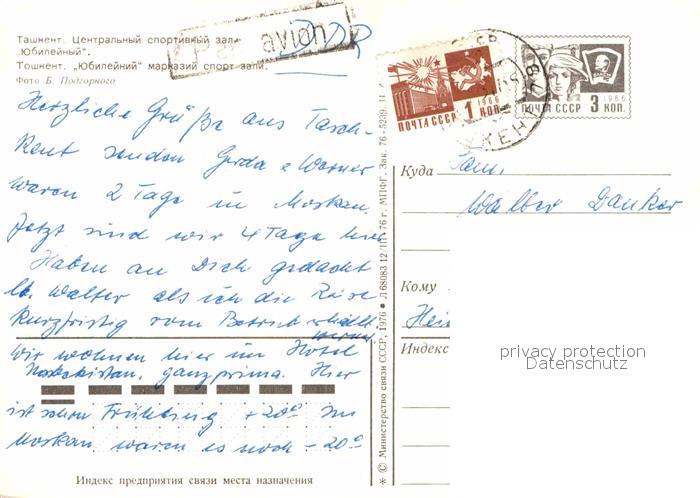 Ташкент. Центральный спортивный зал
„Юбилейный“.
Тошкент. „Юбилейний“ марказий спорт зали.
Фото Б. Подгорного
Par avion
DDR
Herzliche Grüße aus Tasch-
kent senden Gerda u Werner
waren 2 Tage in Moskau.
Jetzt sind wir 4 Tage hier
Haben an Dich gedacht
lb. Walter als ich die Reise
kurzfristig vom Betrieb erhielt.
Wir wohnen hier im Hotel
Usbekistan, ganz prima. Hier
ist schon Frühling +20° In
Moskau waren es noch -20°
Индекс предприятия связи места назначения
* © Министерство связи СССР, 1976 • Л 68083 12/III-76 г. МПФГ. Зак. 76-5239.
1966
ПОЧТА СССР 1 КОП.
1966
ПОЧТА СССР 3 КОП.
Куда Fam.
Walter Danker
Кому
Hei
Индекс
privacy protection
Datenschutz